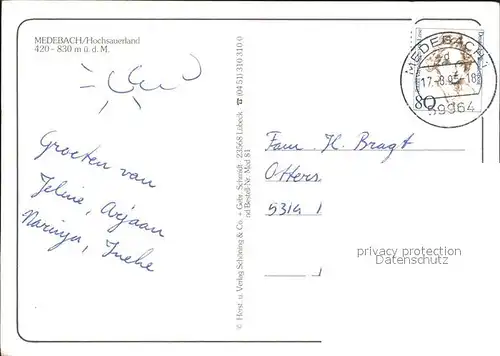 MEDEBACH/Hochsauerland
420 - 830 m ü. d. M.
Groeten van
Jeline, Arjaan
Marinya, Ineke
© Horst. u. Verlag Schöning & Co. + Gebr. Schmidt, 23568 Lübeck
Bestell-Nr. Med 81
☎ (04 51) 310 310 0
MEDEBACH 1
59964
80
Fam. H. Bragt
Otters
5314
privacy protection
Datenschutz